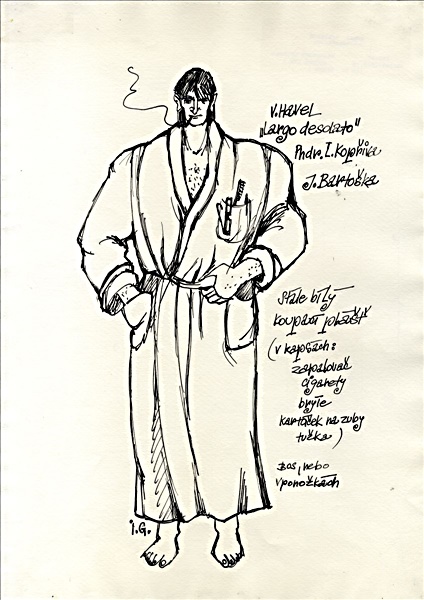 V. Havel
„Largo desolato"
Phdr. L. Kopřiva
J. Bartoška
stále bílý
koupací plášť
(v kapsách:
zapalovač
cigarety
brýle
kartáček na zuby
tužka)
bos, nebo
v ponožkách
I.G.